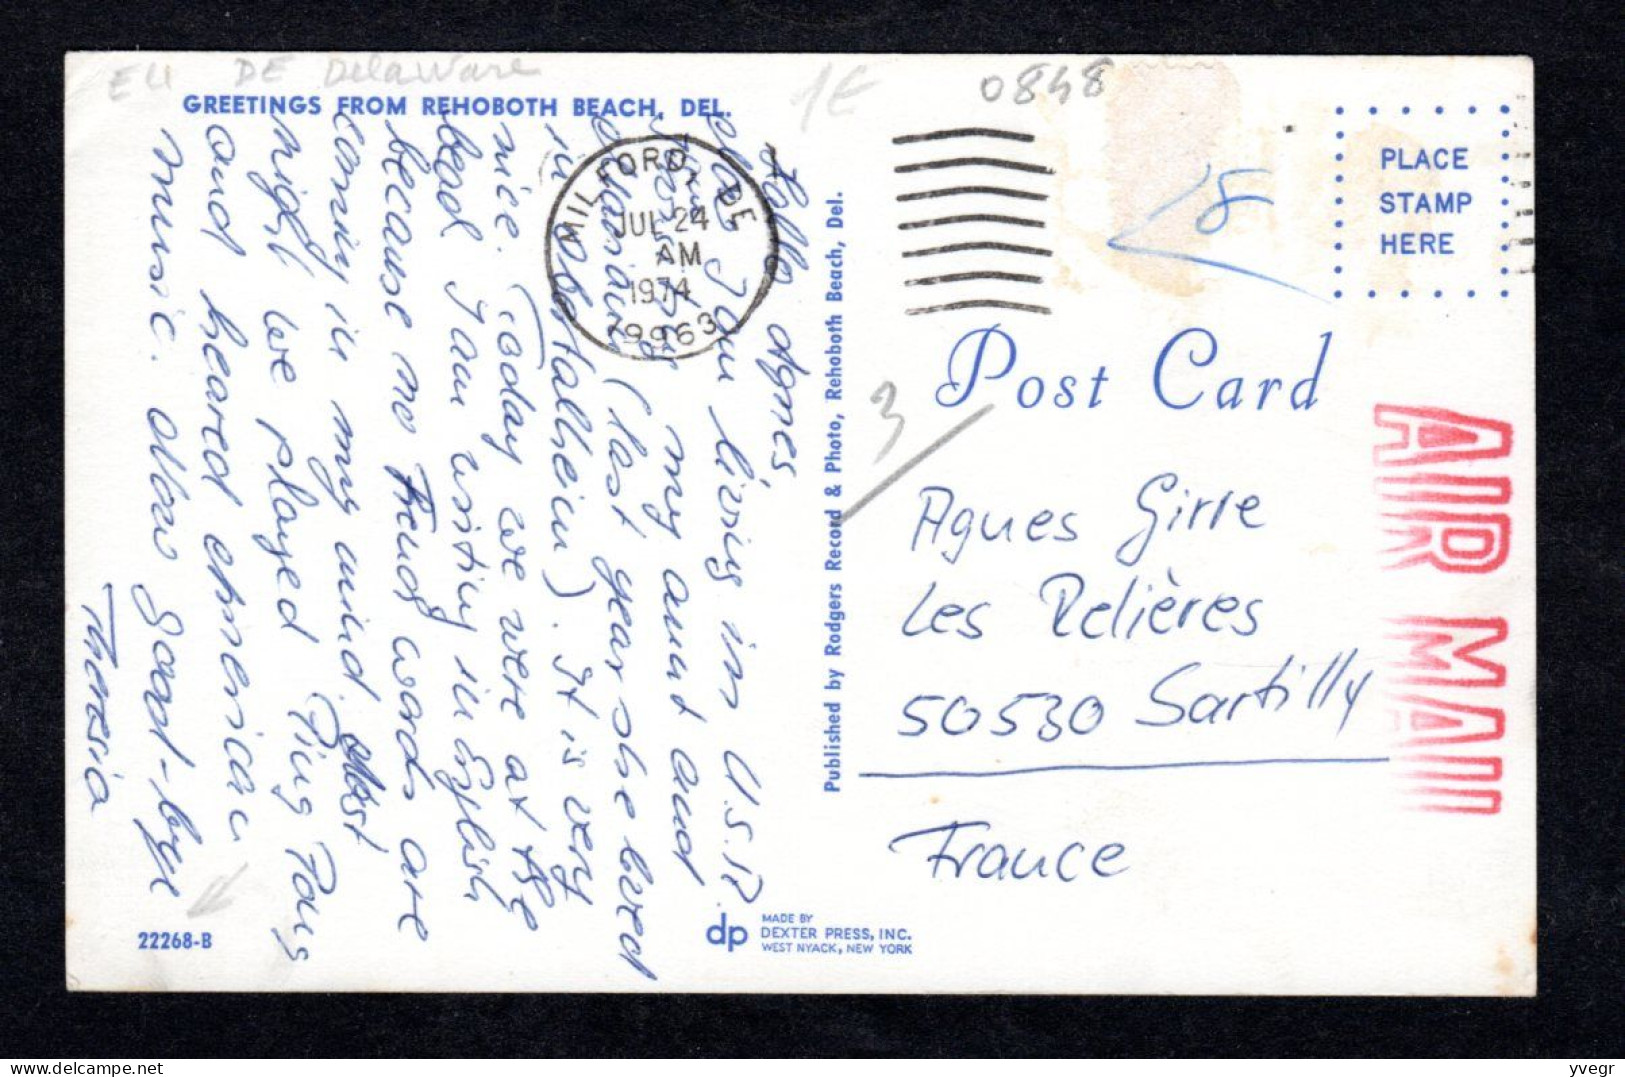 EU DE Delaware
1€
0848
GREETINGS FROM REHOBOTH BEACH, DEL.
PLACE
STAMP
HERE
MILFORD, DE
JUL 24
AM
1974
19963
Post Card
AIR MAIL
3
Hallo Agnes
Now I am living in U.S.A.
with my aunt and
(last year she lived
in Oberstalheim). It is very
nice. Today we were at the
bead. I am writing in English
because no french words are
coming in my mind. Last
night we played Ping Pong
and heared american
music. Now good-bye
Theresia
Published by Rodgers Record & Photo, Rehoboth Beach, Del.
Agnes Girre
Les Relières
50530 Sartilly
France
22268-B
dp MADE BY
DEXTER PRESS, INC.
WEST NYACK, NEW YORK
yvegr
delcampe.net